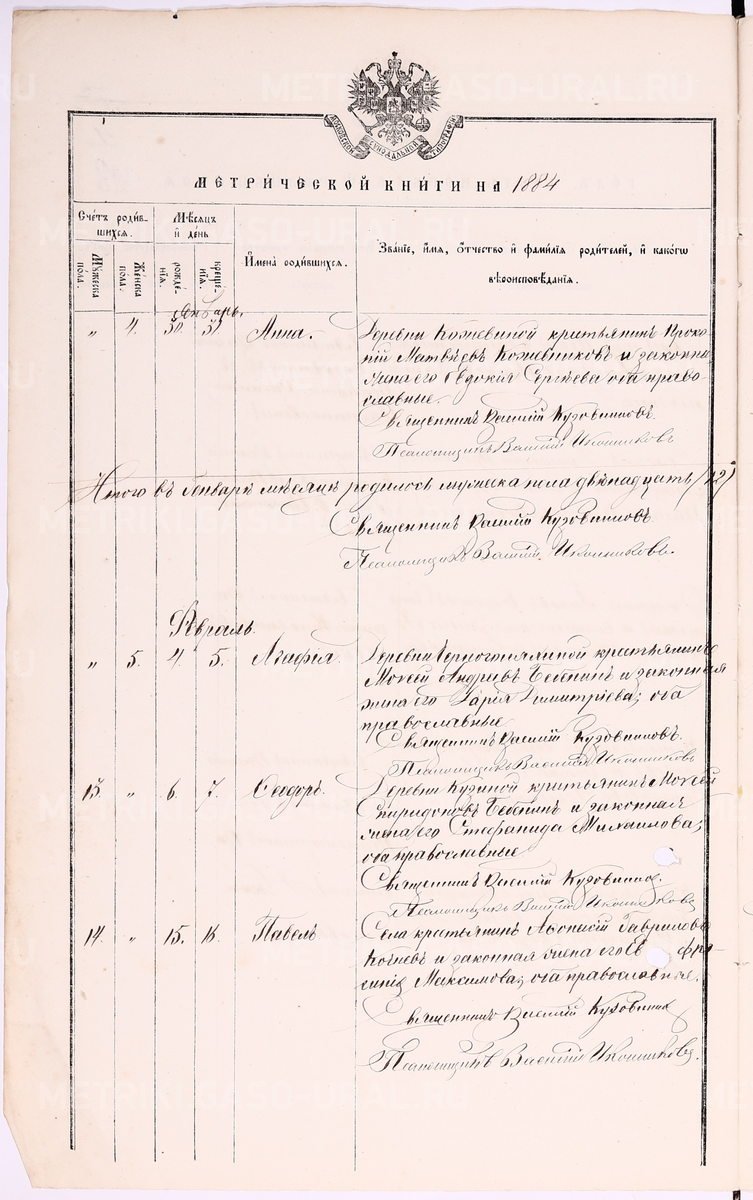 МОСКОВСКОЙ СѴНОДАЛЬНОЙ ТИПОГРАФІИ
МЕТРИ́ЧЕСКОЙ КНИ́ГИ НА 1884
Сче́тъ роди́в-
шихся.
Мѣ́сяцъ
и҆ де́нь
И҆мена̀ родившихся.
Зва́ніе, и҆́мя, ѻ҆́тчество и҆ фами́лія роди́телей, и҆ како́гѡ
вѣроисповѣ́данія.
Мꙋ́жеска пола.
Же́нска пола.
рожде́-
нія.
креще́-
нія.
Январь.
„ 4. 30 31 Анна. Деревни Кожевиной крестьянинъ Проко-
пій Матвѣевъ Кожевниковъ и законная
жена его Евдокія Сергѣева оба право-
славные.
Священникъ Василій Кузовниковъ
Псаломщикъ Василій Иконниковъ
Итого въ Январѣ мѣсяцѣ родилось мужеска пола двѣнадцать (12)
Священникъ Василій Кузовниковъ
Псаломщикъ Василій Иконниковъ.
Февраль.
„ 5. 4. 5. Агафія. Деревни крестьянинъ
Мокей Андреевъ Бебенинъ и законная
жена его Дарія Димитріева; оба
православные
Священникъ Василій Кузовниковъ.
Псаломщикъ Василій Иконниковъ
13. „ 6. 7. Ѳеодоръ. Деревни Кузиной крестьянинъ Мокей
Спиридоновъ Бебенинъ и законная
жена его Стефанида Михаилова;
оба православные
Священникъ Василій Кузовниковъ.
Псаломщикъ Василій Иконниковъ
14. „ 15. 18. Павелъ Села крестьянинъ Гавриловъ
и законная жена его Ев фро-
синія Максимова; оба православные.
Священникъ Василій Кузовниковъ
Псаломщикъ Василій Иконниковъ.
METRIKI.GASO-URAL.RU